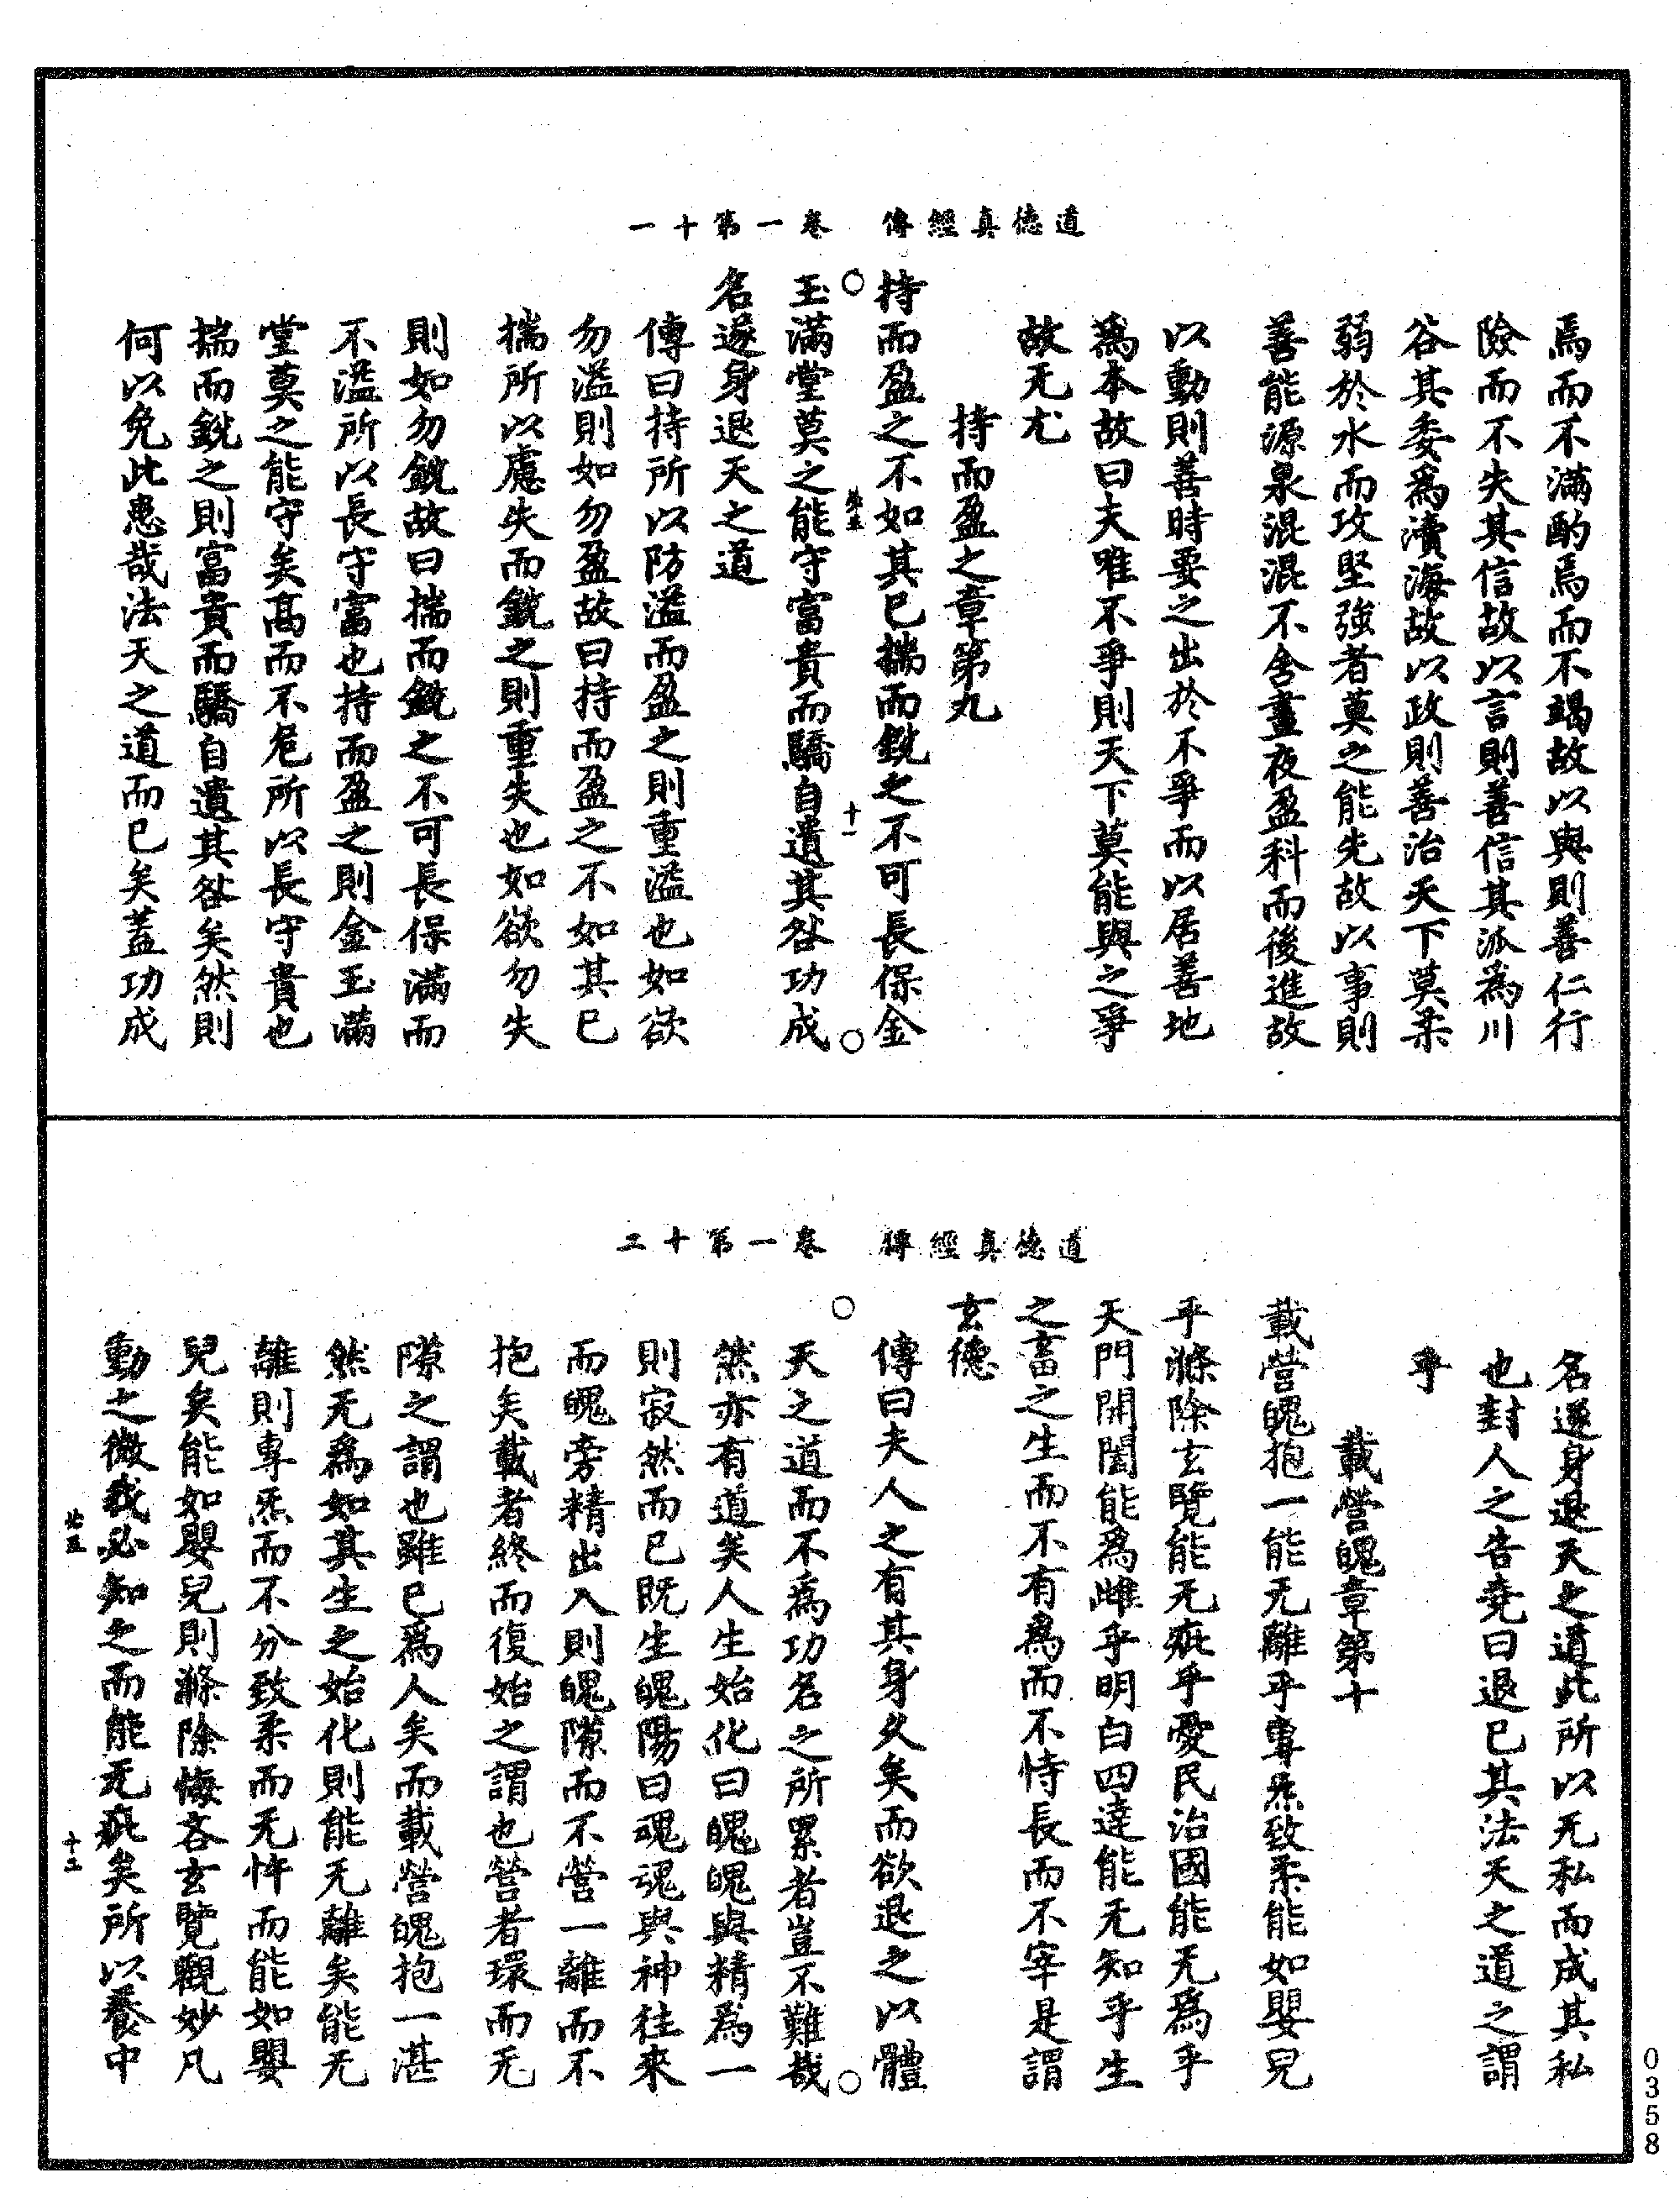 道德真經傳　卷一第十一
焉而不滿酌焉而不竭故以與則善仁行
險而不失其信故以言則善信其派為川
谷其委爲瀆海故以政則善治天下莫柔
弱於水而攻堅強者莫之能先故以事則
善能源泉混混不舍晝夜盈科而後進故
以動則善時要之出於不爭而以居善地
爲本故曰夫唯不爭則天下莫能與之爭
故无尤
持而盈之章第九
持而盈之不如其已揣而銳之不可長保金
玉滿堂莫之能守富貴而驕自遺其咎功成
名遂身退天之道
傳曰持所以防溢而盈之則重溢也如欲
勿溢則如勿盈故曰持而盈之不如其已
揣所以慮失而銳之則重失也如欲勿失
則如勿銳故曰揣而銳之不可長保滿而
不溢所以長守富也持而盈之則金玉滿
堂莫之能守矣高而不危所以長守貴也
揣而銳之則富貴而驕自遺其咎矣然則
何以免此患哉法天之道而已矣蓋功成
十一
道德真經傳　卷一第十二
名遂身退天之道此所以无私而成其私
也封人之告堯曰退已其法天之道之謂
乎
載營魄章第十
載營魄抱一能无離乎專炁致柔能如嬰兒
乎滌除玄覽能无疵乎愛民治國能无爲乎
天門開闔能爲雌乎明白四達能无知乎生
之畜之生而不有爲而不恃長而不宰是謂
玄德
傳曰夫人之有其身久矣而欲退之以體
天之道而不為功名之所累者豈不難哉
然亦有道矣人生始化曰魄魄與精爲一
則寂然而已既生魄陽曰魂魂與神往來
而魄旁精出入則魄隙而不營一離而不
抱矣載者終而復始之謂也營者環而无
隙之謂也雖已爲人矣而載營魄抱一湛
然无爲如其生之始化則能无離矣能无
離則專炁而不分致柔而无忤而能如嬰
兒矣能如嬰兒則滌除悔吝玄覽觀妙凡
動之微我必知之而能无疵矣所以養中
十二
0358